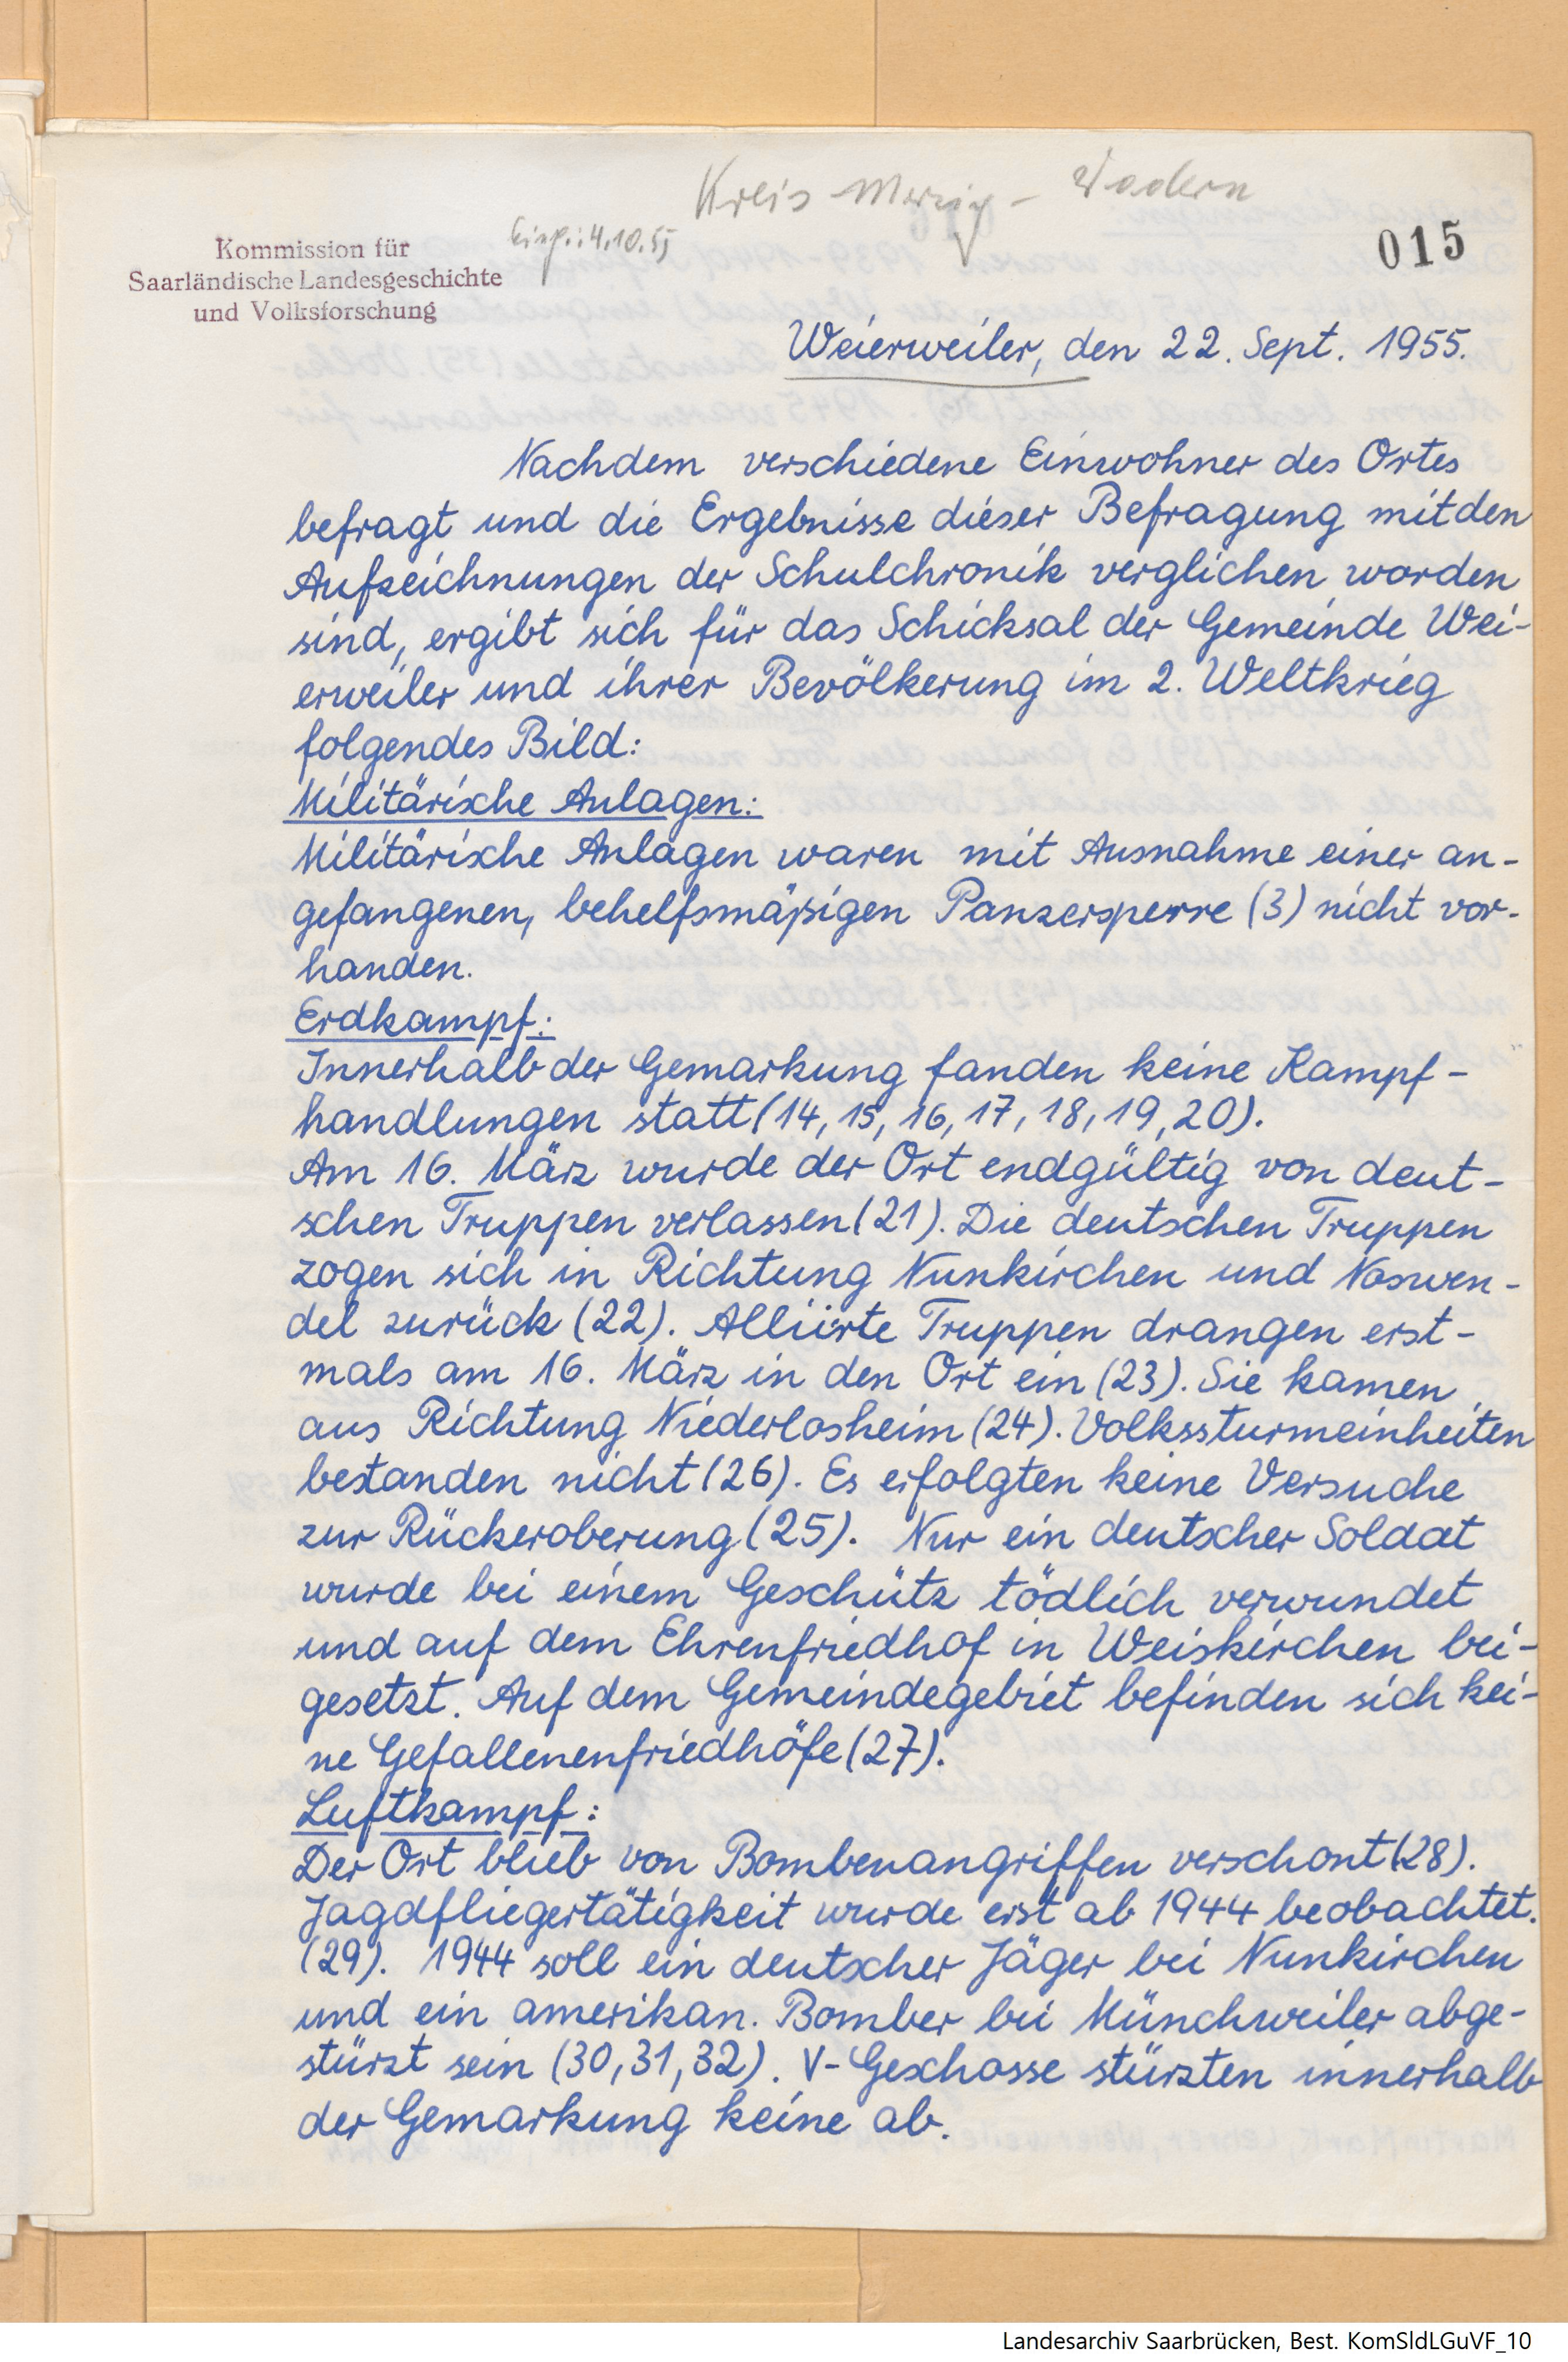 Kreis Merzig - Wadern
Eing.: 4.10.55
015
Kommission für
Saarländische Landesgeschichte
und Volksforschung
Weierweiler, den 22. Sept. 1955.
Nachdem verschiedene Einwohner des Ortes
befragt und die Ergebnisse dieser Befragung mit den
Aufzeichnungen der Schulchronik verglichen worden
sind, ergibt sich für das Schicksal der Gemeinde Wei-
erweiler und ihrer Bevölkerung im 2. Weltkrieg
folgendes Bild:
Militärische Anlagen:
Militärische Anlagen waren mit Ausnahme einer an-
gefangenen, behelfsmäßigen Panzersperre (3) nicht vor-
handen.
Erdkampf:
Innerhalb der Gemarkung fanden keine Kampf-
handlungen statt (14, 15, 16, 17, 18, 19, 20).
Am 16. März wurde der Ort endgültig von deut-
schen Truppen verlassen (21). Die deutschen Truppen
zogen sich in Richtung Nunkirchen und Noswen-
del zurück (22). Alliierte Truppen drangen erst-
mals am 16. März in den Ort ein (23). Sie kamen
aus Richtung Niederlosheim (24). Volkssturmeinheiten
bestanden nicht (26). Es erfolgten keine Versuche
zur Rückeroberung (25). Nur ein deutscher Soldat
wurde bei einem Geschütz tödlich verwundet
und auf dem Ehrenfriedhof in Weiskirchen bei-
gesetzt. Auf dem Gemeindegebiet befinden sich kei-
ne Gefallenenfriedhöfe (27).
Luftkampf:
Der Ort blieb von Bombenangriffen verschont (28).
Jagdfliegertätigkeit wurde erst ab 1944 beobachtet.
(29). 1944 soll ein deutscher Jäger bei Nunkirchen
und ein amerikan. Bomber bei Münchweiler abge-
stürzt sein (30, 31, 32). V-Geschosse stürzten innerhalb
der Gemarkung keine ab.
Landesarchiv Saarbrücken, Best. KomSldLGuVF_10